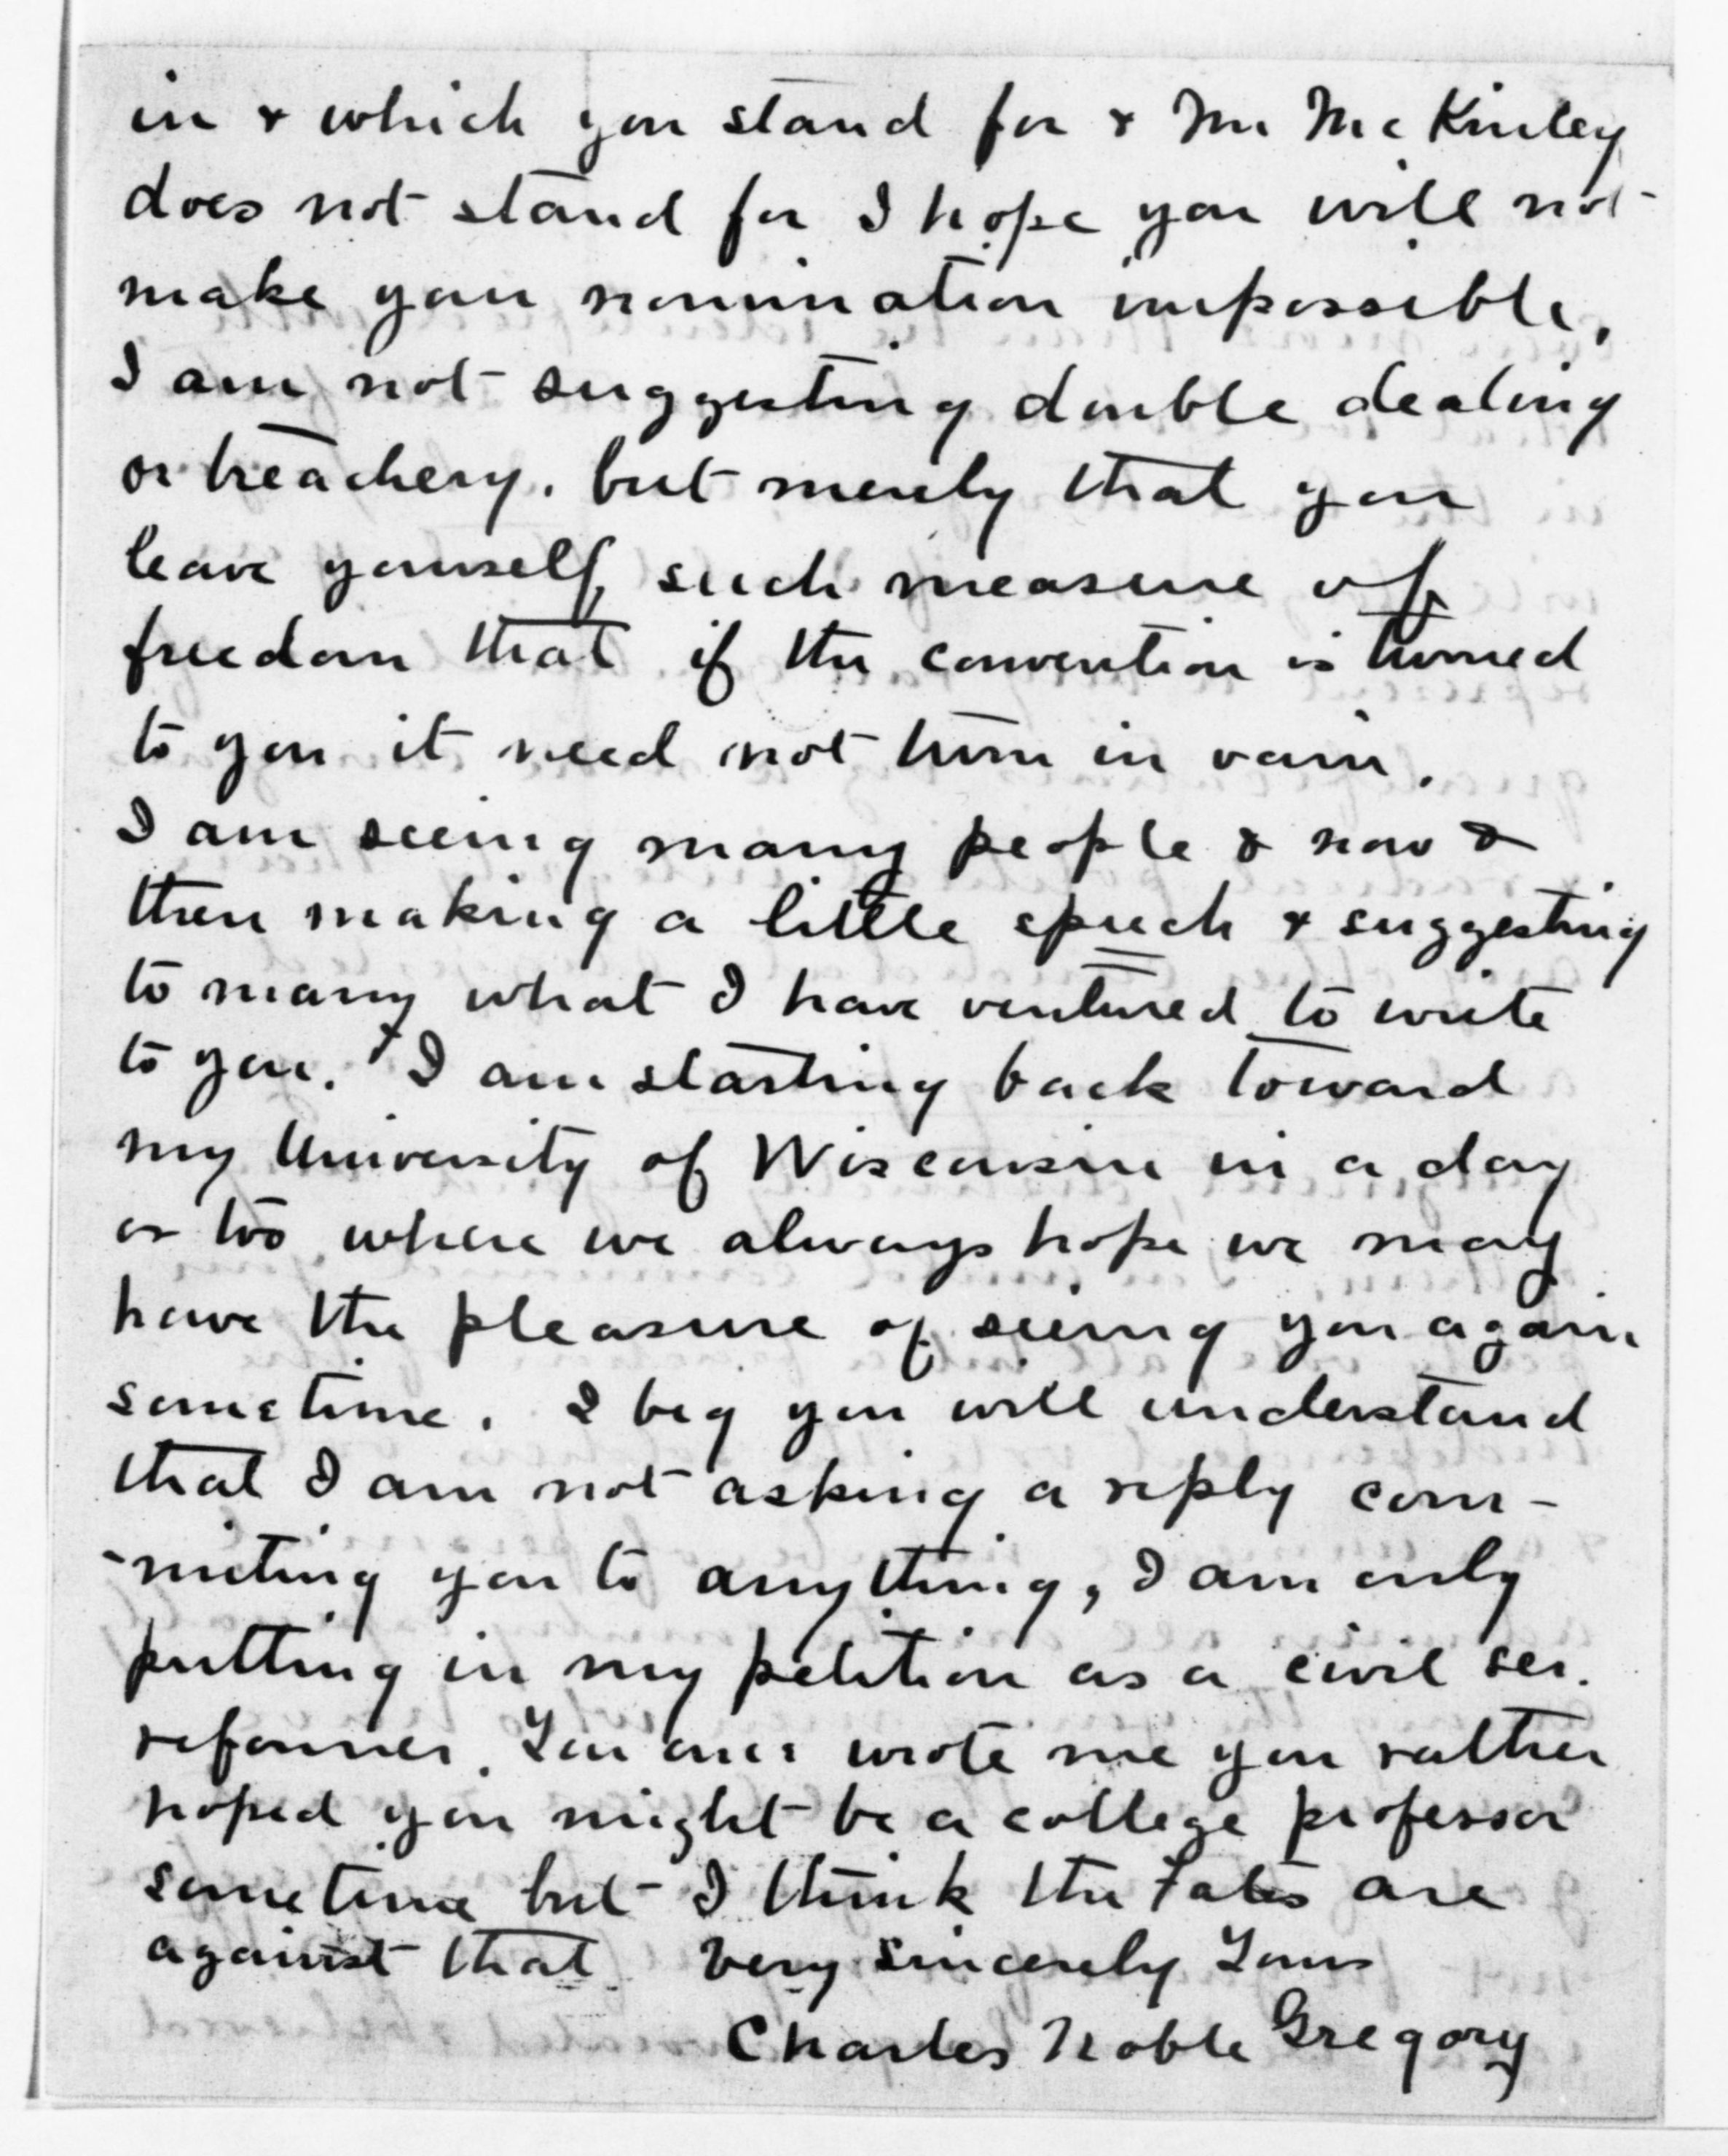 in & which you stand for & Mr McKinley
does not stand for I hope you will not
make your nomination impossible.
I am not suggesting double dealing
or treachery. but merely that you
leave yourself such measure of
freedom that if the convention is turned
to you it need not turn in vain.
I am seeing many people & now &
then making a little speech & suggesting
to many what I have ventured to write
to you. I am starting back toward
my University of Wisconsin in a day
or two where we always hope we may
have the pleasure of seeing you again
sometime. I beg you will understand
that I am not asking a reply com-
-miting you to anything, I am only
putting in my petition as a civil ser.
reformer. You once wrote me you rather
hoped you might be a college professor
sometime but I think the Fates are
against that Very Sincerely Yours
Charles Noble Gregory